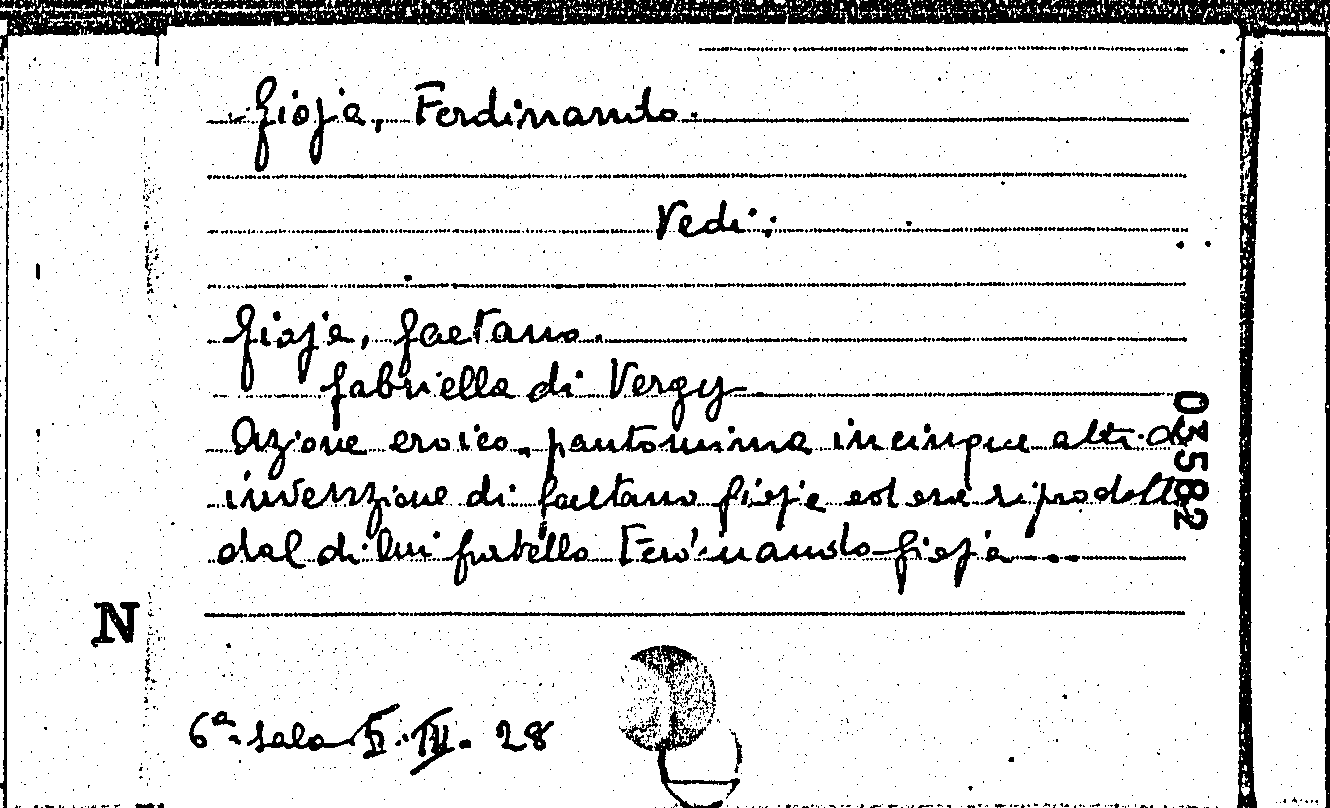 Gioja, Ferdinando.
Vedi:
Gioja, Gaetano.
Gabriella di Vergy
Azione eroico-pantomima in cinque atti d
invenzione di Gaetano Gioja ed ora riprodotta
dal di lui fratello Ferdinando Gioja ...
03582
N
6ª sala 28